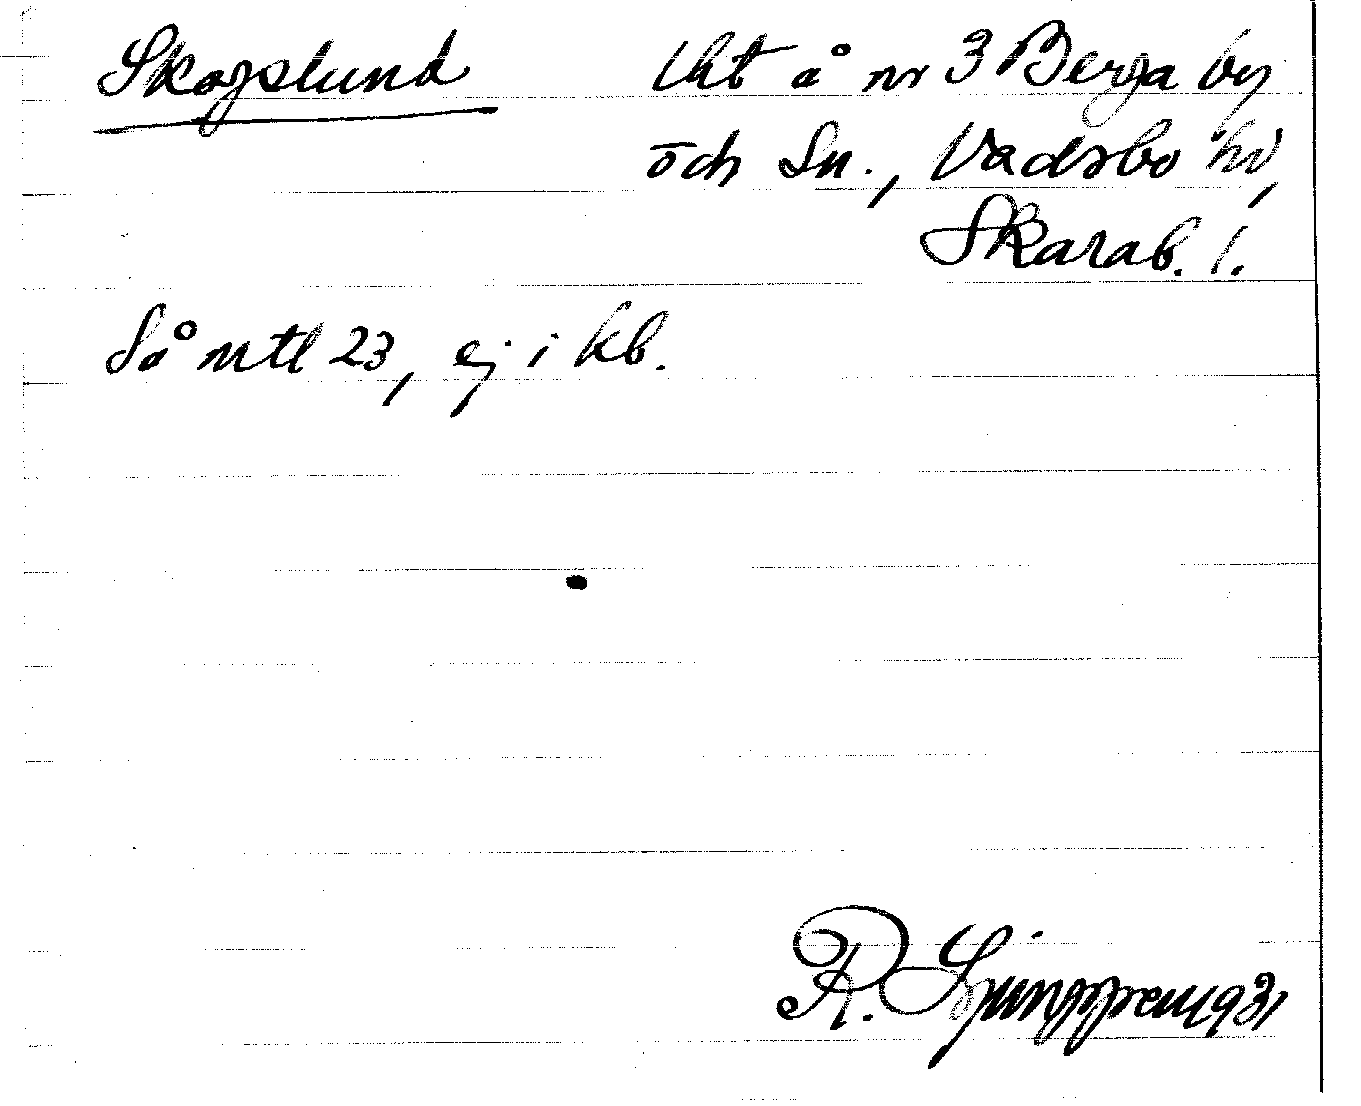 Skogslund lht å nr 3 Berga by
och Sn., Vadsbo hd,
Skarab. l.
Så mtl 23, ej i kb.
R. Ljunggren 1931